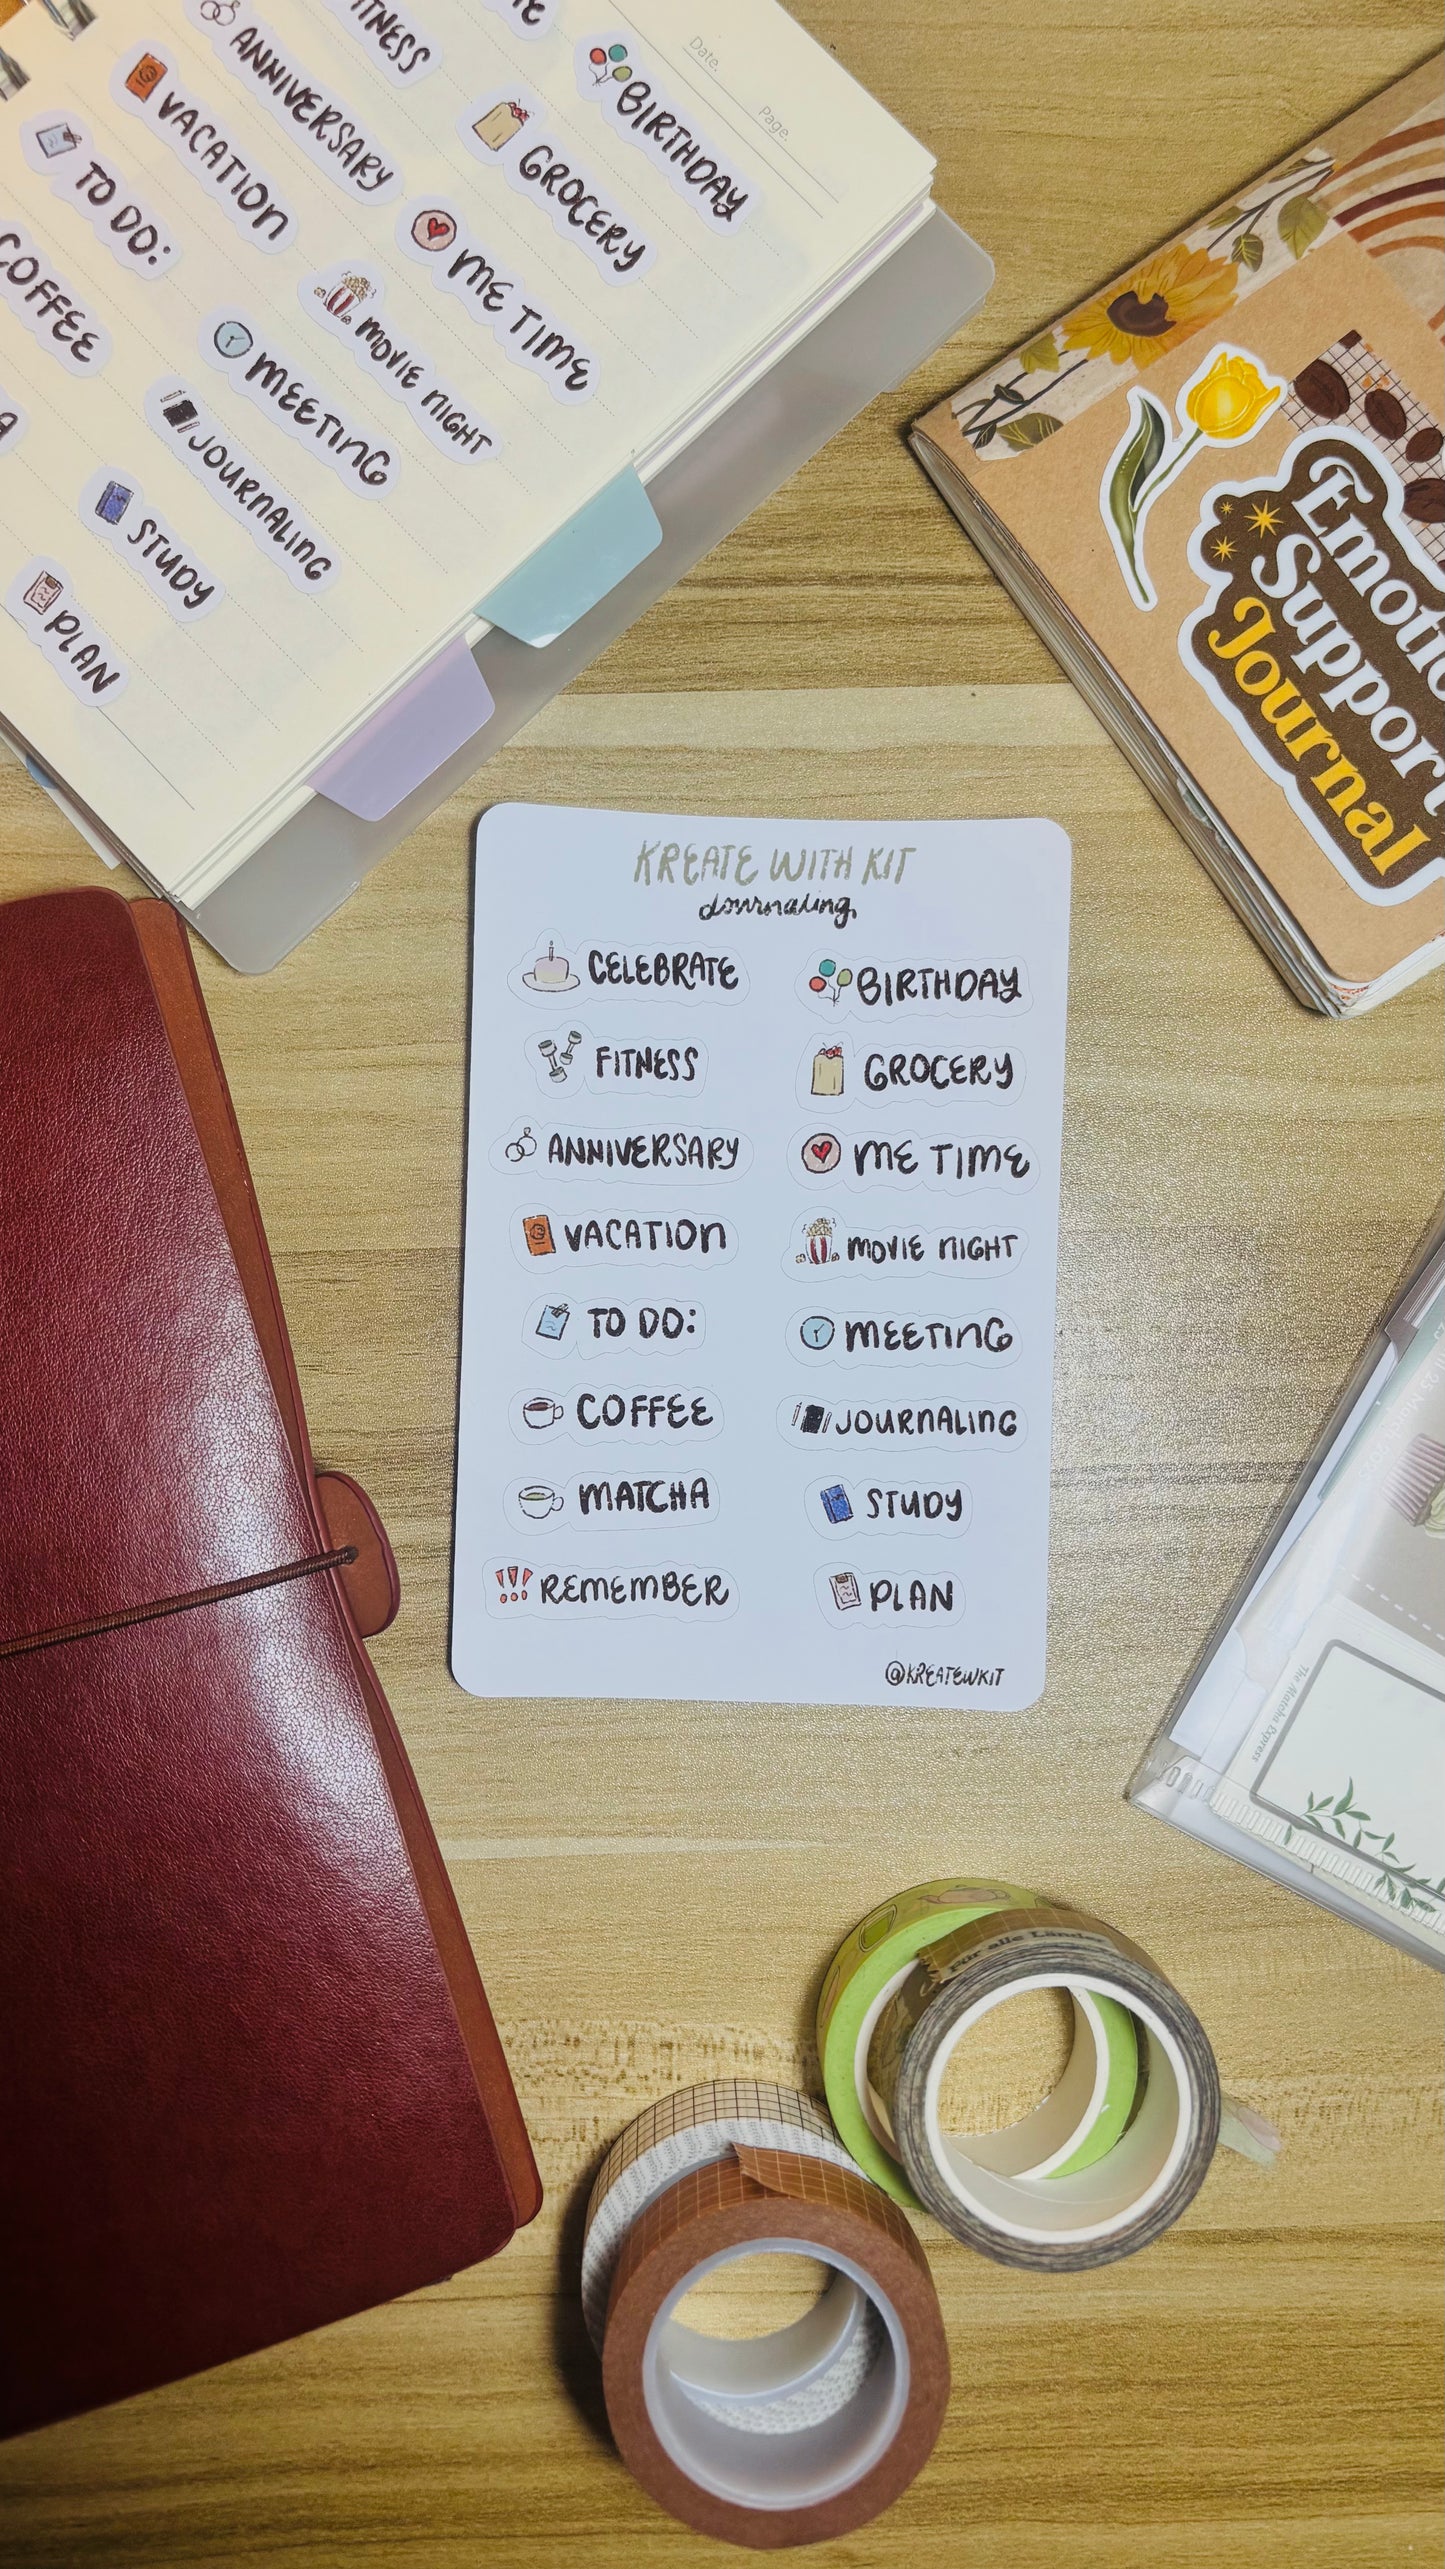 TNESS
ANNIVERSARY
VACATION
TO DO:
COFFEE
BIRTHDAY
GROCERY
ME TIME
MOVIE NIGHT
MEETING
JOURNALING
STUDY
PLAN
Date.
Page.
Emotio
Support
Journal
KREATE WITH KIT
Journaling
CELEBRATE
FITNESS
ANNIVERSARY
VACATION
TO DO:
COFFEE
MATCHA
REMEMBER
BIRTHDAY
GROCERY
ME TIME
MOVIE NIGHT
MEETING
JOURNALING
STUDY
PLAN
@KREATEWKIT
25 March 202
The Matcha Express
Für alle Länder